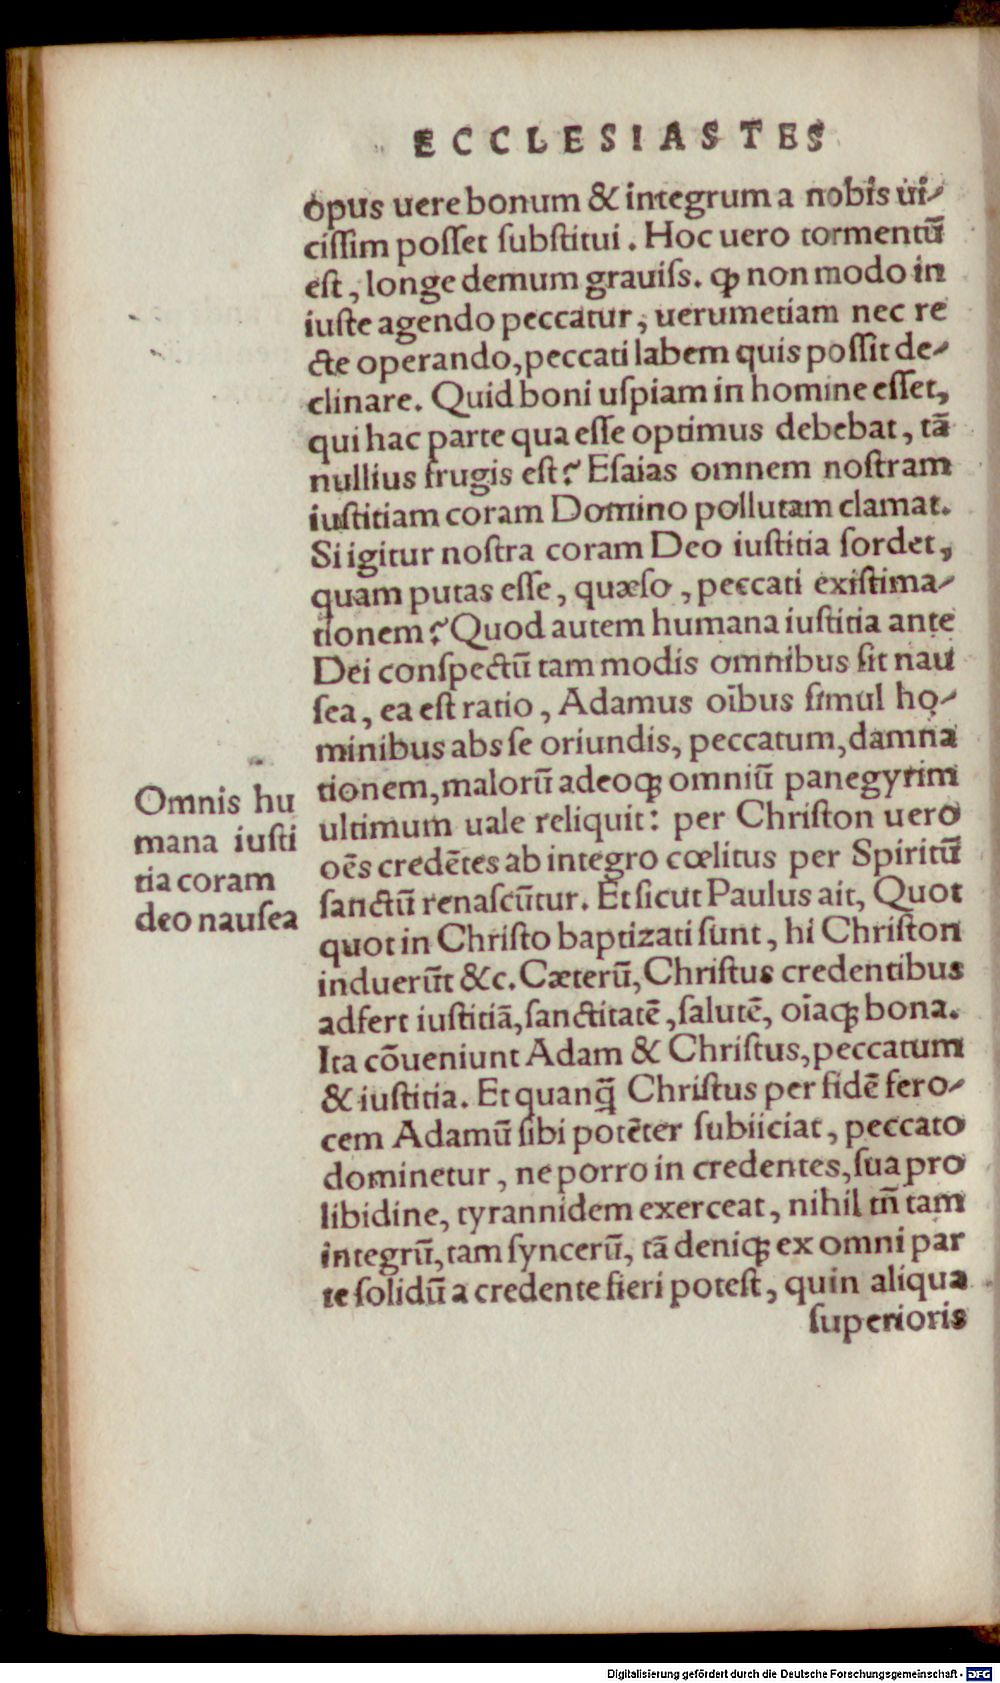 ECCLESIASTES
opus uere bonum & integrum a nobis ui-
cissim posset substitui. Hoc uero tormentū
est, longe demum grauiss. ꝙ non modo in
iuste agendo peccatur, uerumetiam nec re
cte operando, peccati labem quis possit de-
clinare. Quid boni uspiam in homine esset,
qui hac parte qua esse optimus debebat, tā
nullius frugis est? Esaias omnem nostram
iustitiam coram Domino pollutam clamat.
Si igitur nostra coram Deo iustitia sordet,
quam putas esse, quæso, peccati existima-
tionem? Quod autem humana iustitia ante
Dei conspectū tam modis omnibus sit nau
sea, ea est ratio, Adamus oībus simul ho-
minibus abs se oriundis, peccatum, damna
tionem, malorū adeoqꝫ omniū panegyrim
ultimum uale reliquit: per Christon uero
oēs credētes ab integro cœlitus per Spiritū
sanctū renascūtur. Et sicut Paulus ait, Quot
quot in Christo baptizati sunt, hi Christon
induerūt &c. Cæterū, Christus credentibus
adfert iustitiā, sanctitatē, salutē, oīaqꝫ bona.
Ita cōueniunt Adam & Christus, peccatum
& iustitia. Et quanq̄ Christus per fidē fero-
cem Adamū sibi potēter subiiciat, peccato
dominetur, ne porro in credentes, sua pro
libidine, tyrannidem exerceat, nihil tñ tam
integrū, tam syncerū, tā deniqꝫ ex omni par
te solidū a credente fieri potest, quin aliqua
superioris
Omnis hu
mana iusti
tia coram
deo nausea
Digitalisierung gefördert durch die Deutsche Forschungsgemeinschaft - DFG